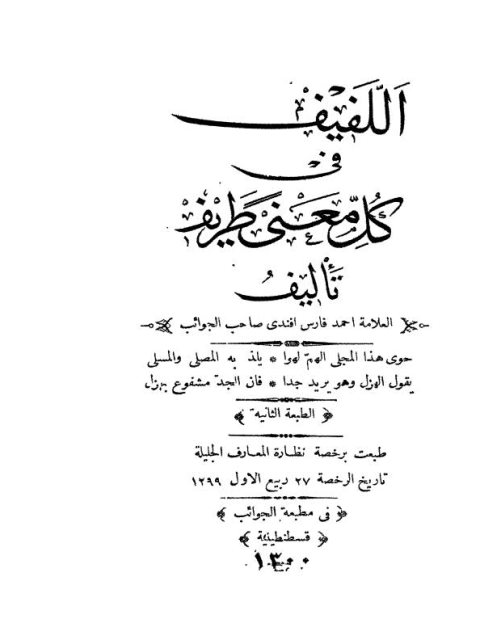 اَللَّفِيْفِ
فى
كُلِّ مَعْنىً طَرِيْفِ
تَأْلِيفُ
العلامة احمد فارس افندى صاحب الجوائب
حوى هذا المجلى الهمّ لهوا * يلذ به المصلى والمسلى
يقول الهزل وهو يريد جدا * فان الجدّ مشفوع بهزل
الطبعة الثانية
طبعت برخصة نظارة المعارف الجليلة
تاريخ الرخصة ٢٧ ربيع الاول ١٢٩٩
فى مطبعة الجوائب
قسطنطينية
١٣٠٠